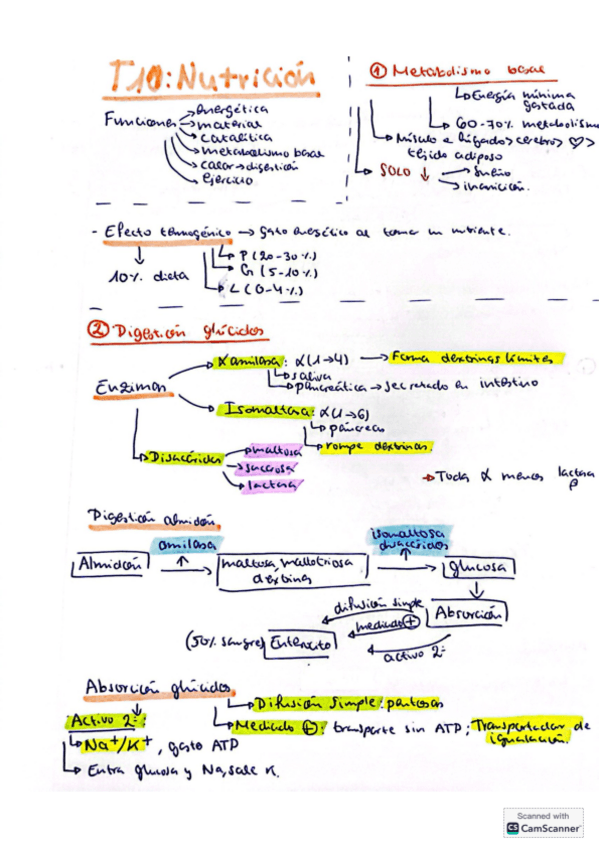 T10: Nutrición
Funciones
energética
material
catalítica
metabolismo basal
calor → digestión
Ejercicio
① Metabolismo basal
Energía mínima
gastada
60-70% metabolismo
Músculo e hígado > cerebro > ♡ >
tejido adiposo
SOLO ↓
Sueño
inanición.
- Efecto termogénico → gasto energético al tomar un nutriente.
10% dieta
P (20-30%)
G (5-10%)
L (0-4%)
② Digestión glúcidos
Enzimas
α amilasa: α(1→4) → Forma dextrinas límites
saliva
pancreática → secretado en intestino
Isomaltasa: α(1→6)
páncreas
rompe dextrinas.
Disacáridos
maltosa
sacarosa
lactasa
→ Todas α menos lactasa
β
Digestión almidón
amilasa
isomaltosa
disacáridos
Almidón → maltosa, maltotriosa → glucosa
dextrinas
Absorción
difusión simple
mediado ⊕
activo 2º
(50% sangre) Enterocito
Absorción glúcidos
Difusión simple: pentosas
Activo 2º:
Mediado ⊕: transporte sin ATP; Transportador de
igualación.
Na⁺/K⁺, gasto ATP
Entra glucosa y Na, sale K.
Scanned with
CS CamScanner